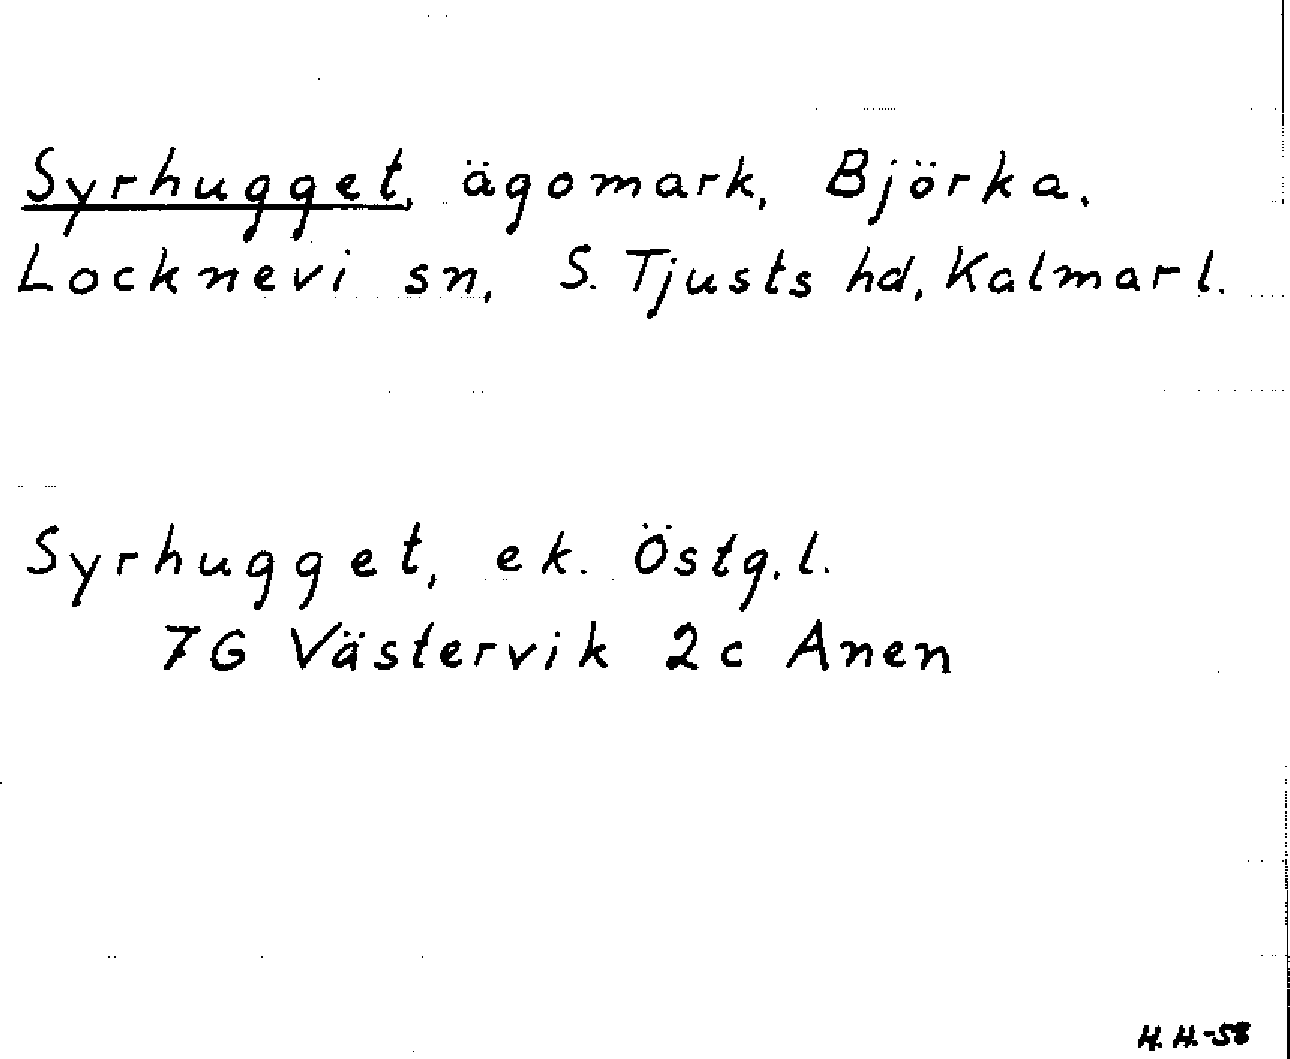 Syrhugget, ägomark, Björka,
Locknevi sn, S. Tjusts hd, Kalmar l.
Syrhugget, ek. Östg. l.
7G Västervik 2c Anen
H. H.-58